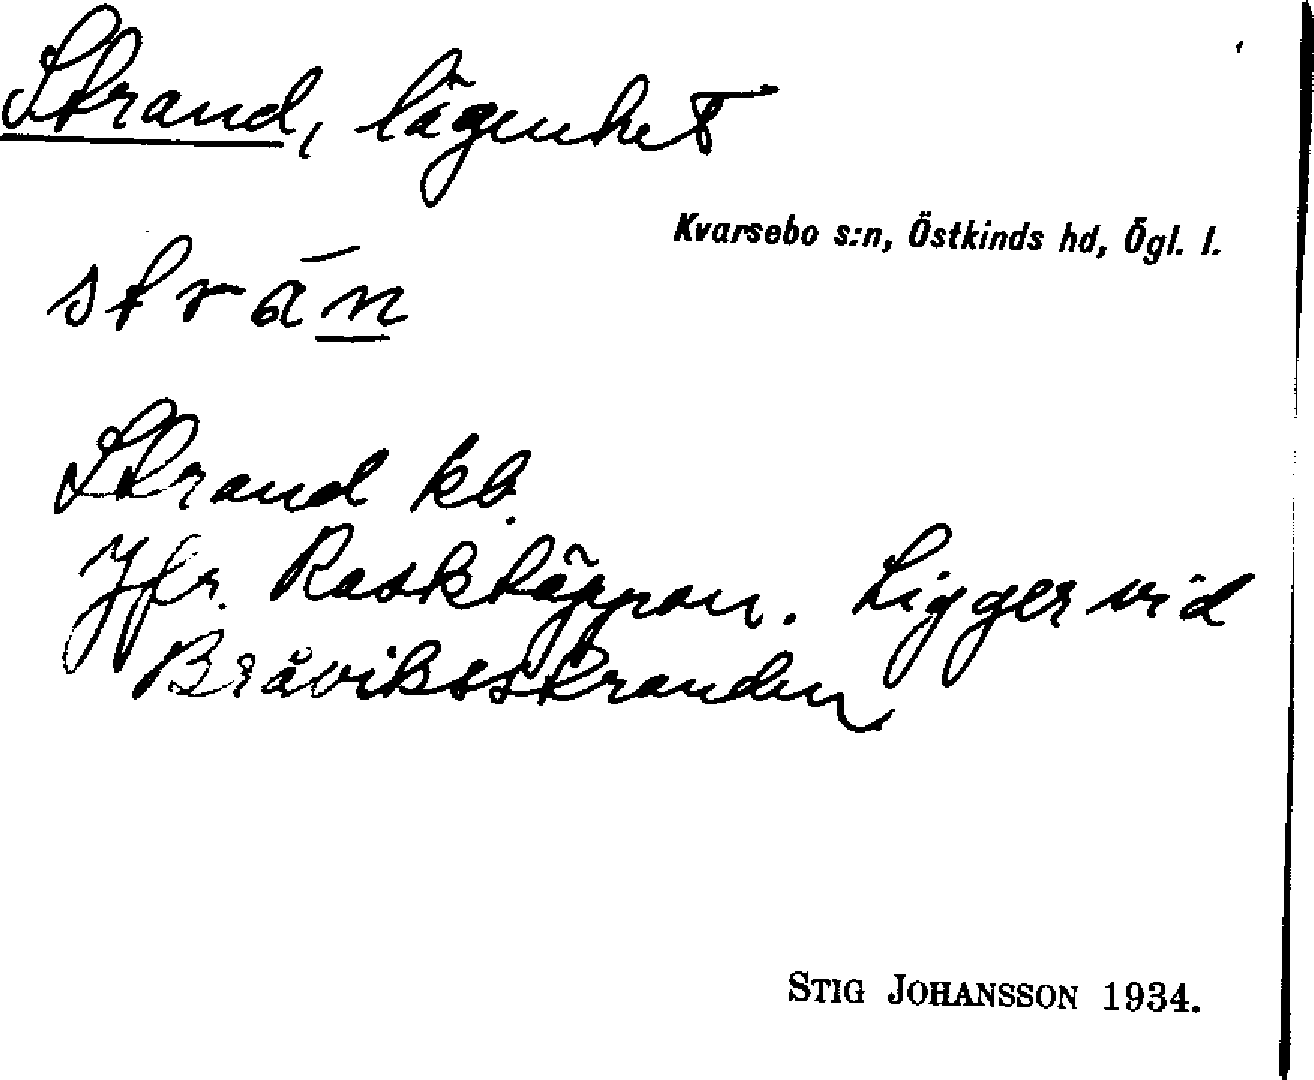 Strand, lägenhet
Kvarsebo s:n, Östkinds hd, Ögl. l.
strān
Strand kb.
Jfr. Rosktäppan. Ligger vid
Bråviksstranden
STIG JOHANSSON 1934.